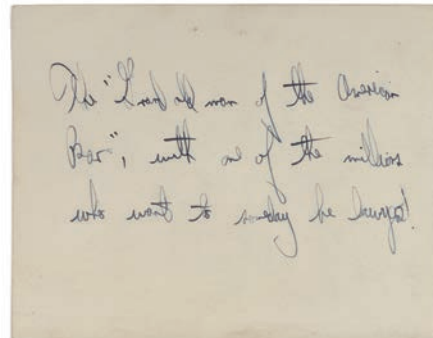 The "Grand old man of the American
Bar", with one of the millions
who want to someday be lawyers!